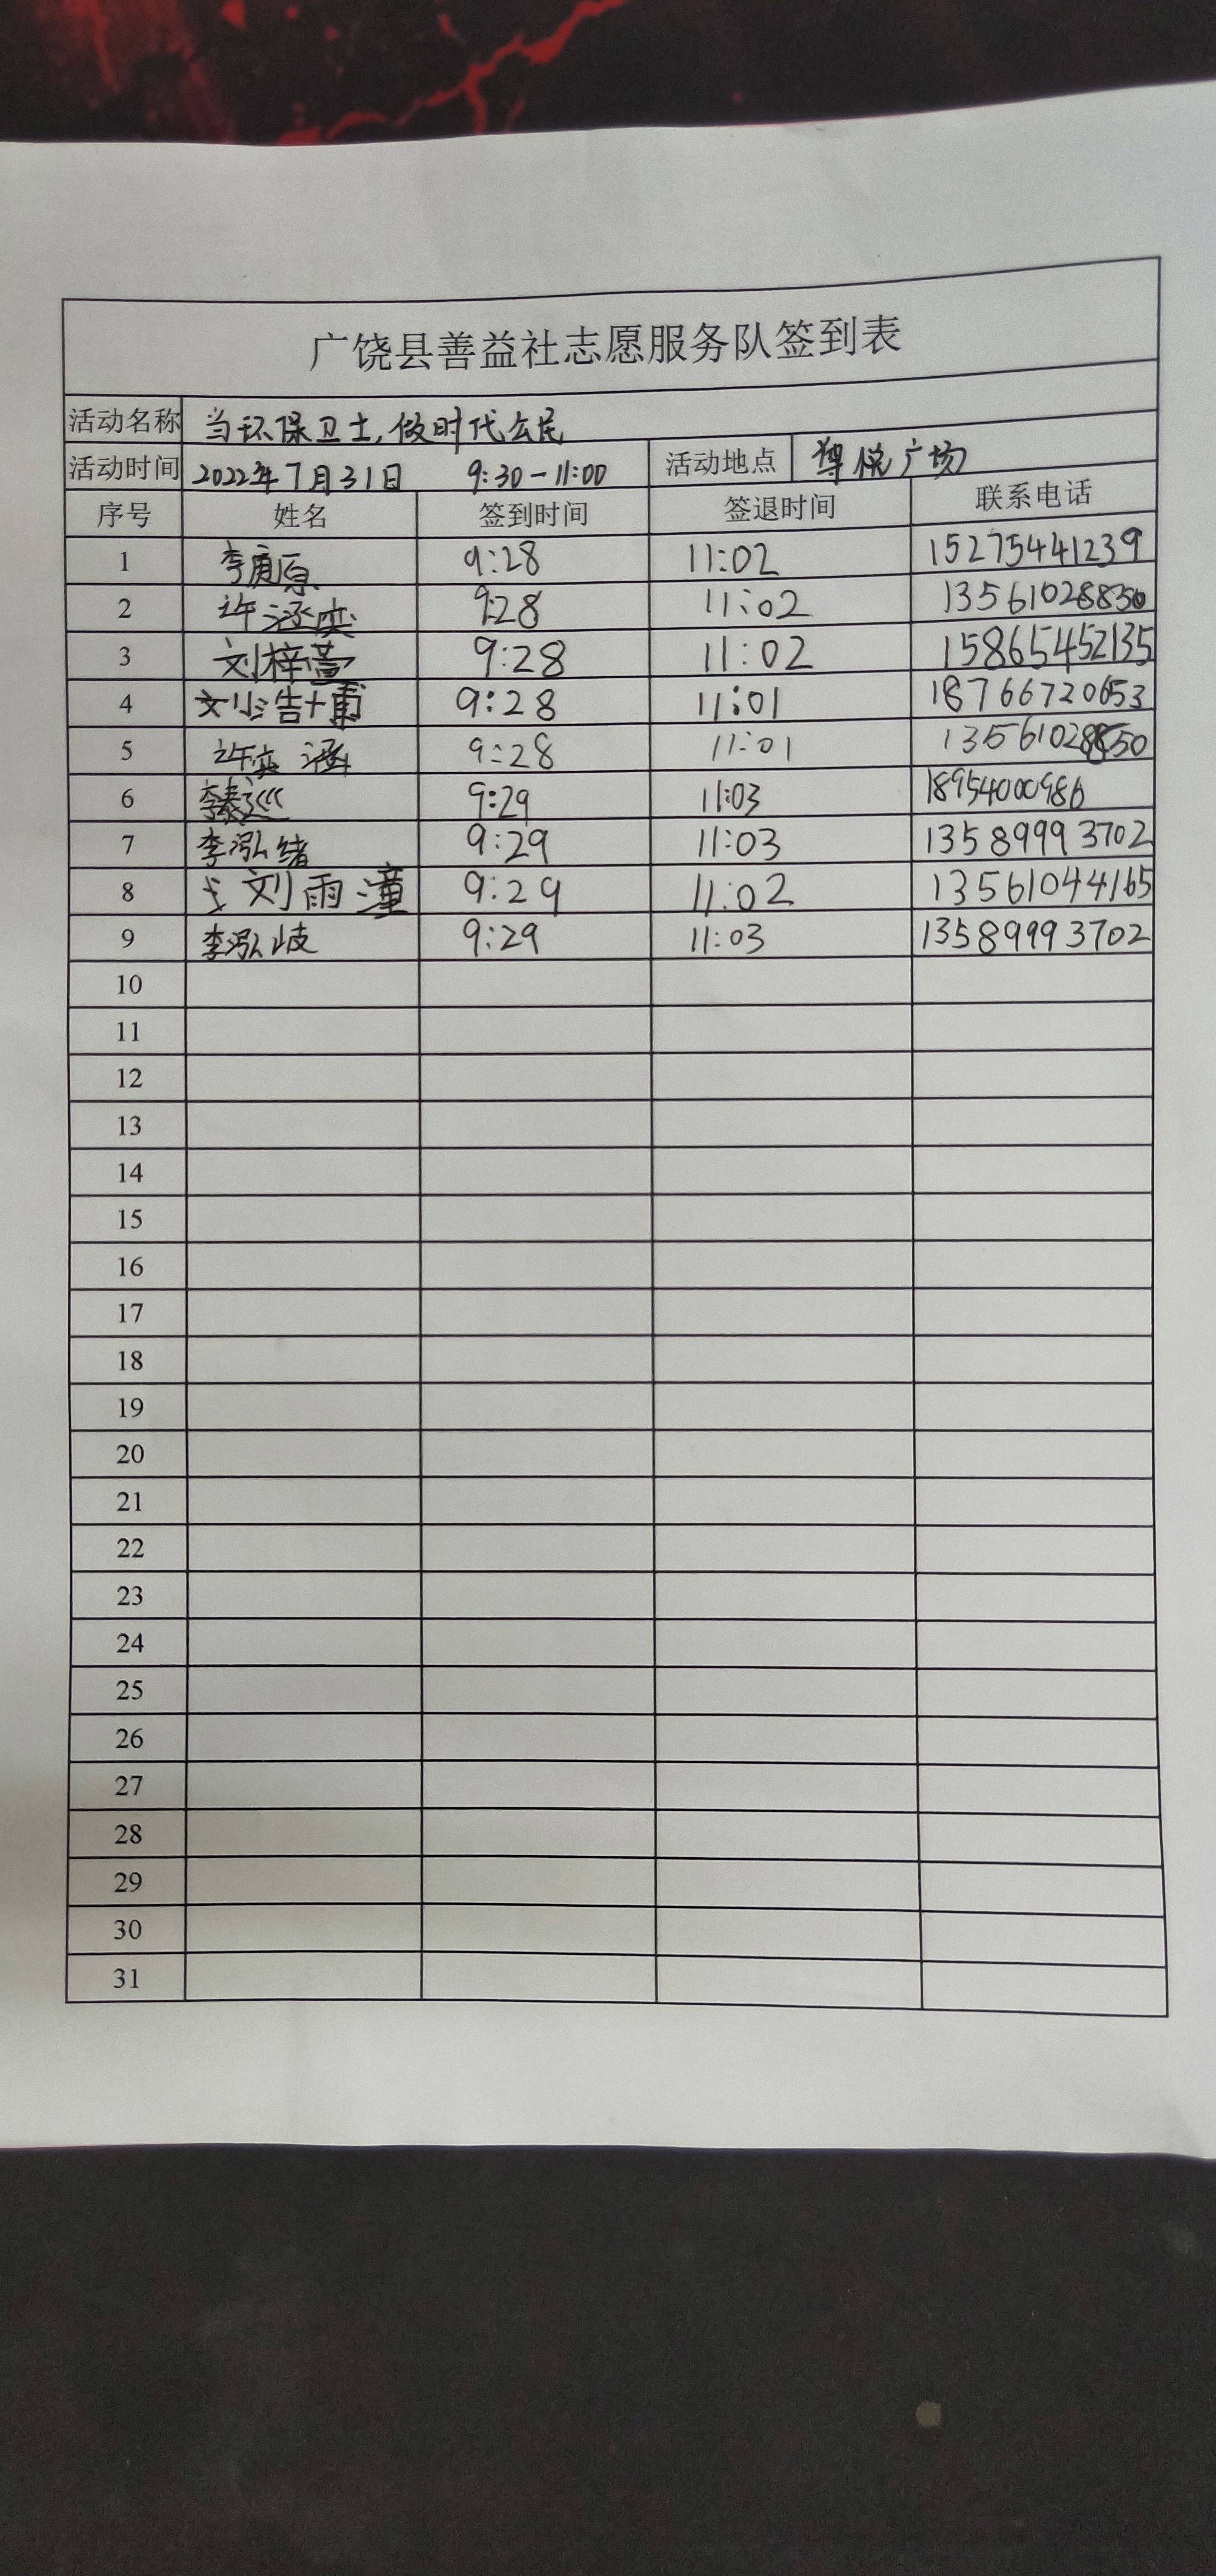 广饶县善益社志愿服务队签到表
活动名称 当环保卫士,做时代公民
活动时间 2022年7月31日 9:30-11:00 活动地点 尊悦广场
序号 姓名 签到时间 签退时间 联系电话
1 李庚原 9:28 11:02 15275441239
2 许涵奕 9:28 11:02 13561028850
3 刘梓萱 9:28 11:02 15865452135
4 刘浩 9:28 11:01 18766720653
5 许奕涵 9:28 11:01 13561028850
6 李 9:29 11:03 18954000986
7 李泓绪 9:29 11:03 13589993702
8 刘雨潼 9:29 11:02 13561044165
9 李泓岐 9:29 11:03 13589993702
10
11
12
13
14
15
16
17
18
19
20
21
22
23
24
25
26
27
28
29
30
31